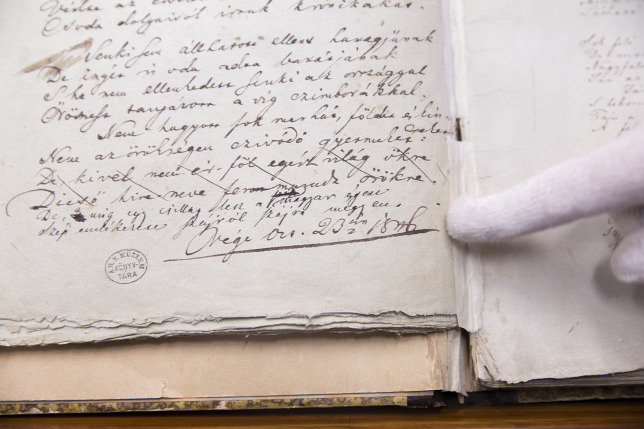 Csoda dolgairól irnak krónikákat.
Senki sem állhatott ellent haragjának
De ingét is oda adta barátjának
S ha nem ellenkedett senki az országgal
Örömest tanyázott a víg czimborákkal.
Nem hagyott sok marhát, földet és kin-
cseket
Nem az örökségen czivódó gyermeket:
De kivel nem ér föl egész világ ökre
Dicső hire neve fenn marad örökre.
De, mig egy csillag lesz a magyar
Szép szájról szájra megyen.
Vége Oct. 23án 1846
A M. N. MUZEUM
KÖNYV-
TÁRA